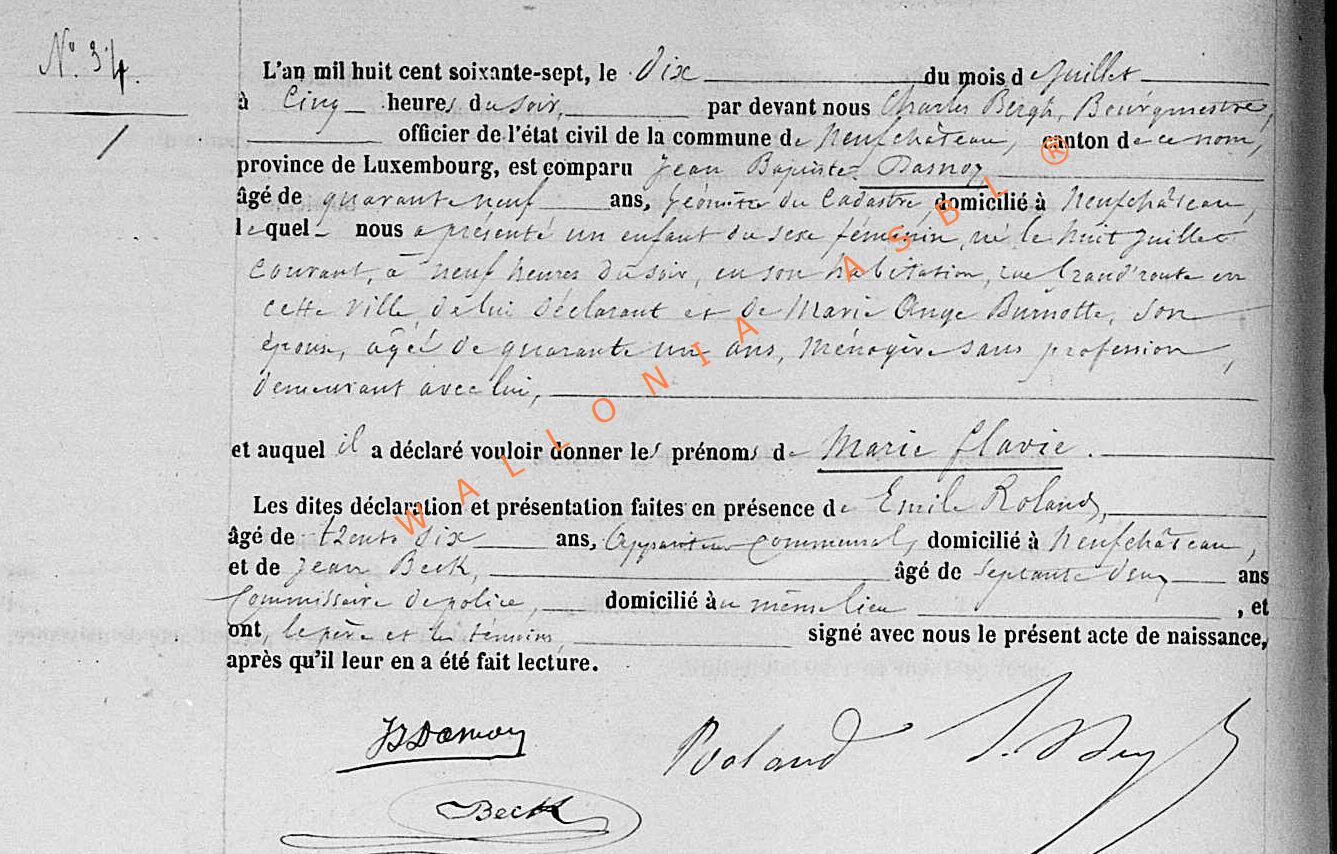 N° 34.
L'an mil huit cent soixante-sept, le Dix du mois de Juillet
à Cinq heures du soir, par devant nous Charles Bergh, Bourgmestre,
officier de l'état civil de la commune de Neufchâteau, canton de ce nom,
province de Luxembourg, est comparu Jean Baptiste Dasnoy
âgé de quarante neuf ans, Géomètre du Cadastre, domicilié à Neufchâteau,
lequel nous a présenté un enfant du sexe féminin, né le huit juillet
courant, à neuf heures du soir, en son habitation, rue Grand'route en
cette ville, de lui déclarant et de Marie Ange Burnotte, son
épouse, âgée de quarante un ans, Ménagère sans profession,
demeurant avec lui,
et auquel il a déclaré vouloir donner les prénoms de Marie Flavie.
Les dites déclaration et présentation faites en présence de Emile Roland,
âgé de trente dix ans, Appariteur communal, domicilié à Neufchâteau,
et de Jean Beck, âgé de septante deux ans
Commissaire de police, domicilié au même lieu, et
ont, le père et les témoins, signé avec nous le présent acte de naissance,
après qu'il leur en a été fait lecture.
JBDasnoy
Roland
Beck
WALLONIA ASBL ®